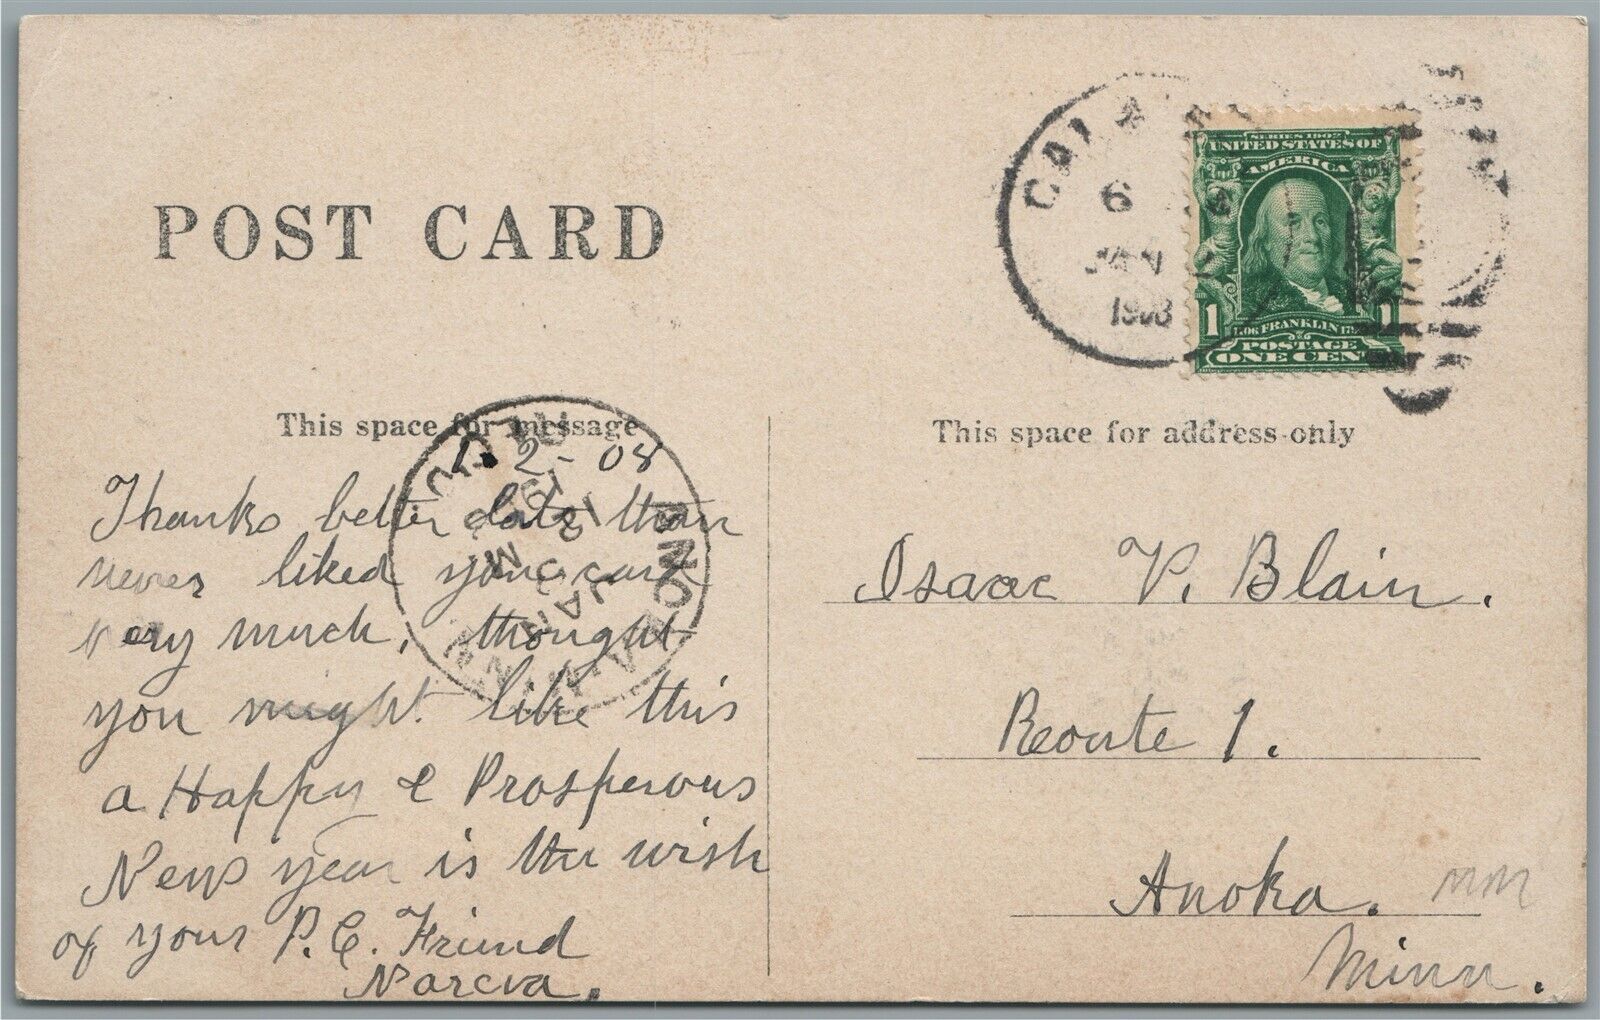 POST CARD
This space for message
1. 2 - 08
Thanks better late than
never liked your card
very much, thought
you might like this
a Happy & Prosperous
New year is the wish
of your P.C. Friend
Narcva.
6
JAN
1908
SERIES 1902
UNITED STATES OF
AMERICA
1 1706 FRANKLIN 1790 1
POSTAGE
ONE CENT
This space for address only
Isaac V. Blain.
Reoute 1.
Anoka.
Minn.
ANOKA
JAN